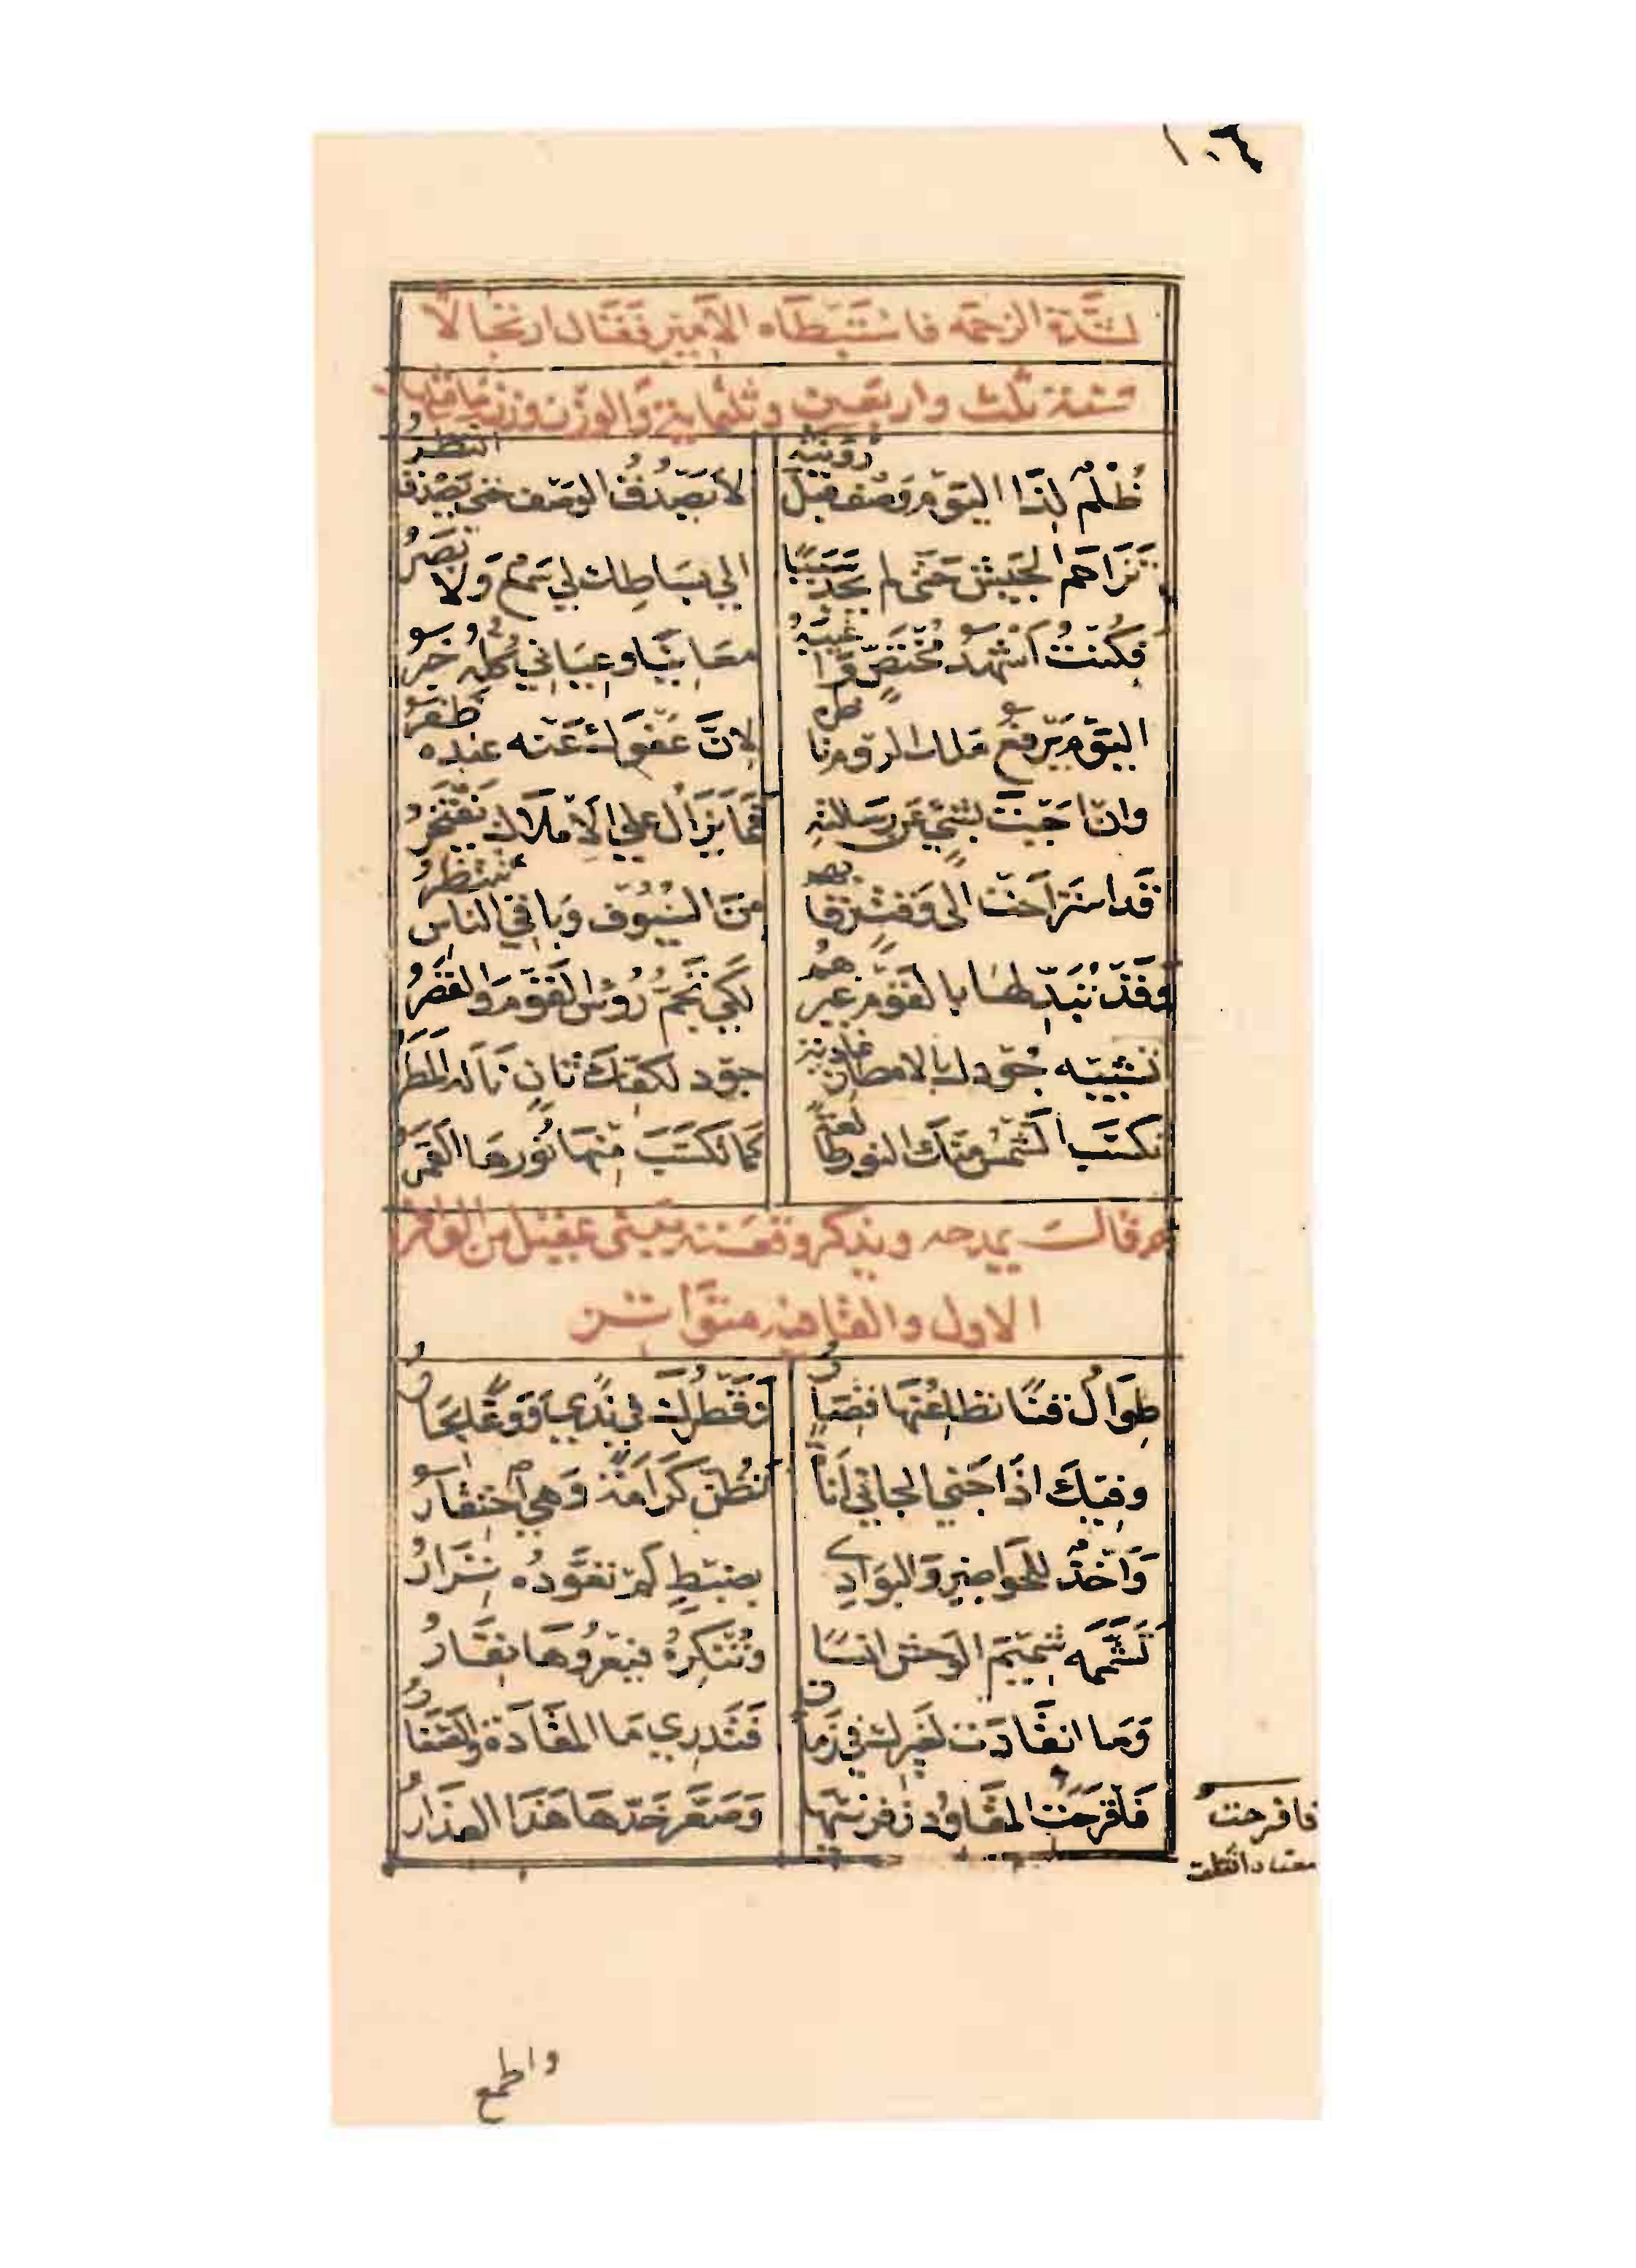 ١٠٦
لشدة الزحمه فاستبطاه الامير فقال ارتجالا
سنة ثلث واربعين وثلثماية والوزن وزن
ظُلْمٌ لِذَا اليَوْمِ وَصْفٌ قَبْلَ رُؤْيَتِهِ لا يَصْدُقُ الوَصْفُ حَتَّى يَصْدُقَ النَّظَرُ
تَزَاحَمَ الجَيْشُ حَتَّى لم يَجِدْ سَبَبًا الي بِسَاطِكَ لِي سَمْعٌ وَلا بَصَرُ
فَكُنْتُ أَشْهَدَ مُخْتَصٍّ وَاَغْيَبَهُ مُعَايِنًا وعِيَانِي كُلُّهُ خَبَرُ
اليَوْمَ يَرْفَعُ مَلك الرُّومِ نَاظِرَهُ لِاَنَّ عَفْوَكَ عَنْهُ عِنْدَهُ ظَفَرُ
وان اجَبْتَ بِشَيْءٍ عَن رَسَائلهِ فَمَا يَزَالُ عَلي الاَمْلاكِ يَفْتَخِرُ
قَدِ اسْتَرَاحَتْ الى وَقْتٍ رِقَابُهُمُ مِنَ السُّيُوفِ وَبَاقِي النَّاسِ يَنْتَظِرُ
وَقَدْ تُبَدِّلُهَا بِالقَوْمِ غَيْرَهُمُ لِكَيْ تَجِمَّ رُؤسُ القَوْمِ وَالقَصَرُ
تشبيه جُودك بالامطار غادية جود لكفك ثان ناله المطر
تكسب الشمس منك النور طالعة كَمَا تَكَسَّبَ مِنْهَا نُورَهَا القَمَرُ
وقال يمدحه ويذكر وقعته ببنى عقيل من الوافر
الاول والقافية متواتر
طِوَالُ قَنًا تُطَاعِنُهَا قِصَارُ وَقَطْرُكَ فِي نَدًي وَوَغًى بِحَارُ
وفِيكَ اِذَا جَنَي الجَانِي اَنَاةٌ تُظَنُّ كَرَامَةً وَهِيَ احْتِقَارُ
وَاَخْذٌ لِلْحَوَاضِرِ وَالبَوَادِي بِضَبْطٍ لَمْ تُعَوَّدْهُ نِزَارُ
تَشَمَّمُه شَمِيمَ الوَحْشِ انسًا وَتُنْكِرُهُ فيَعْرُوهَا نِفَارُ
وَمَا انقَادَتْ لِغَيْرِكَ فِي زَمَانٍ فَتَدْرِي مَا المَقَادَةُ وَالصَّغَارُ
فَاَقْرَحَتِ المَقَاوِدُ ذِفْرَيَيْهَا وَصَعَّرَ خَدَّهَا هَذَا العِذَارُ
فاقرحت
واطمع